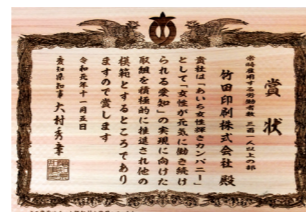 賞状
常時雇用する労働者数 人以上の部
竹田印刷株式会社 殿
貴社は「あいち女性輝きカンパニー」
として「女性が元気に働き続け
られる愛知」の実現に向けた
取組を積極的に推進され他の
模範とするところであり
ますので賞します
令和元年十一月五日
愛知県知事 大村秀章